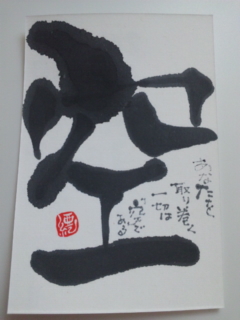 空
あなたを、
取り巻く
一切は
"空"で
ある